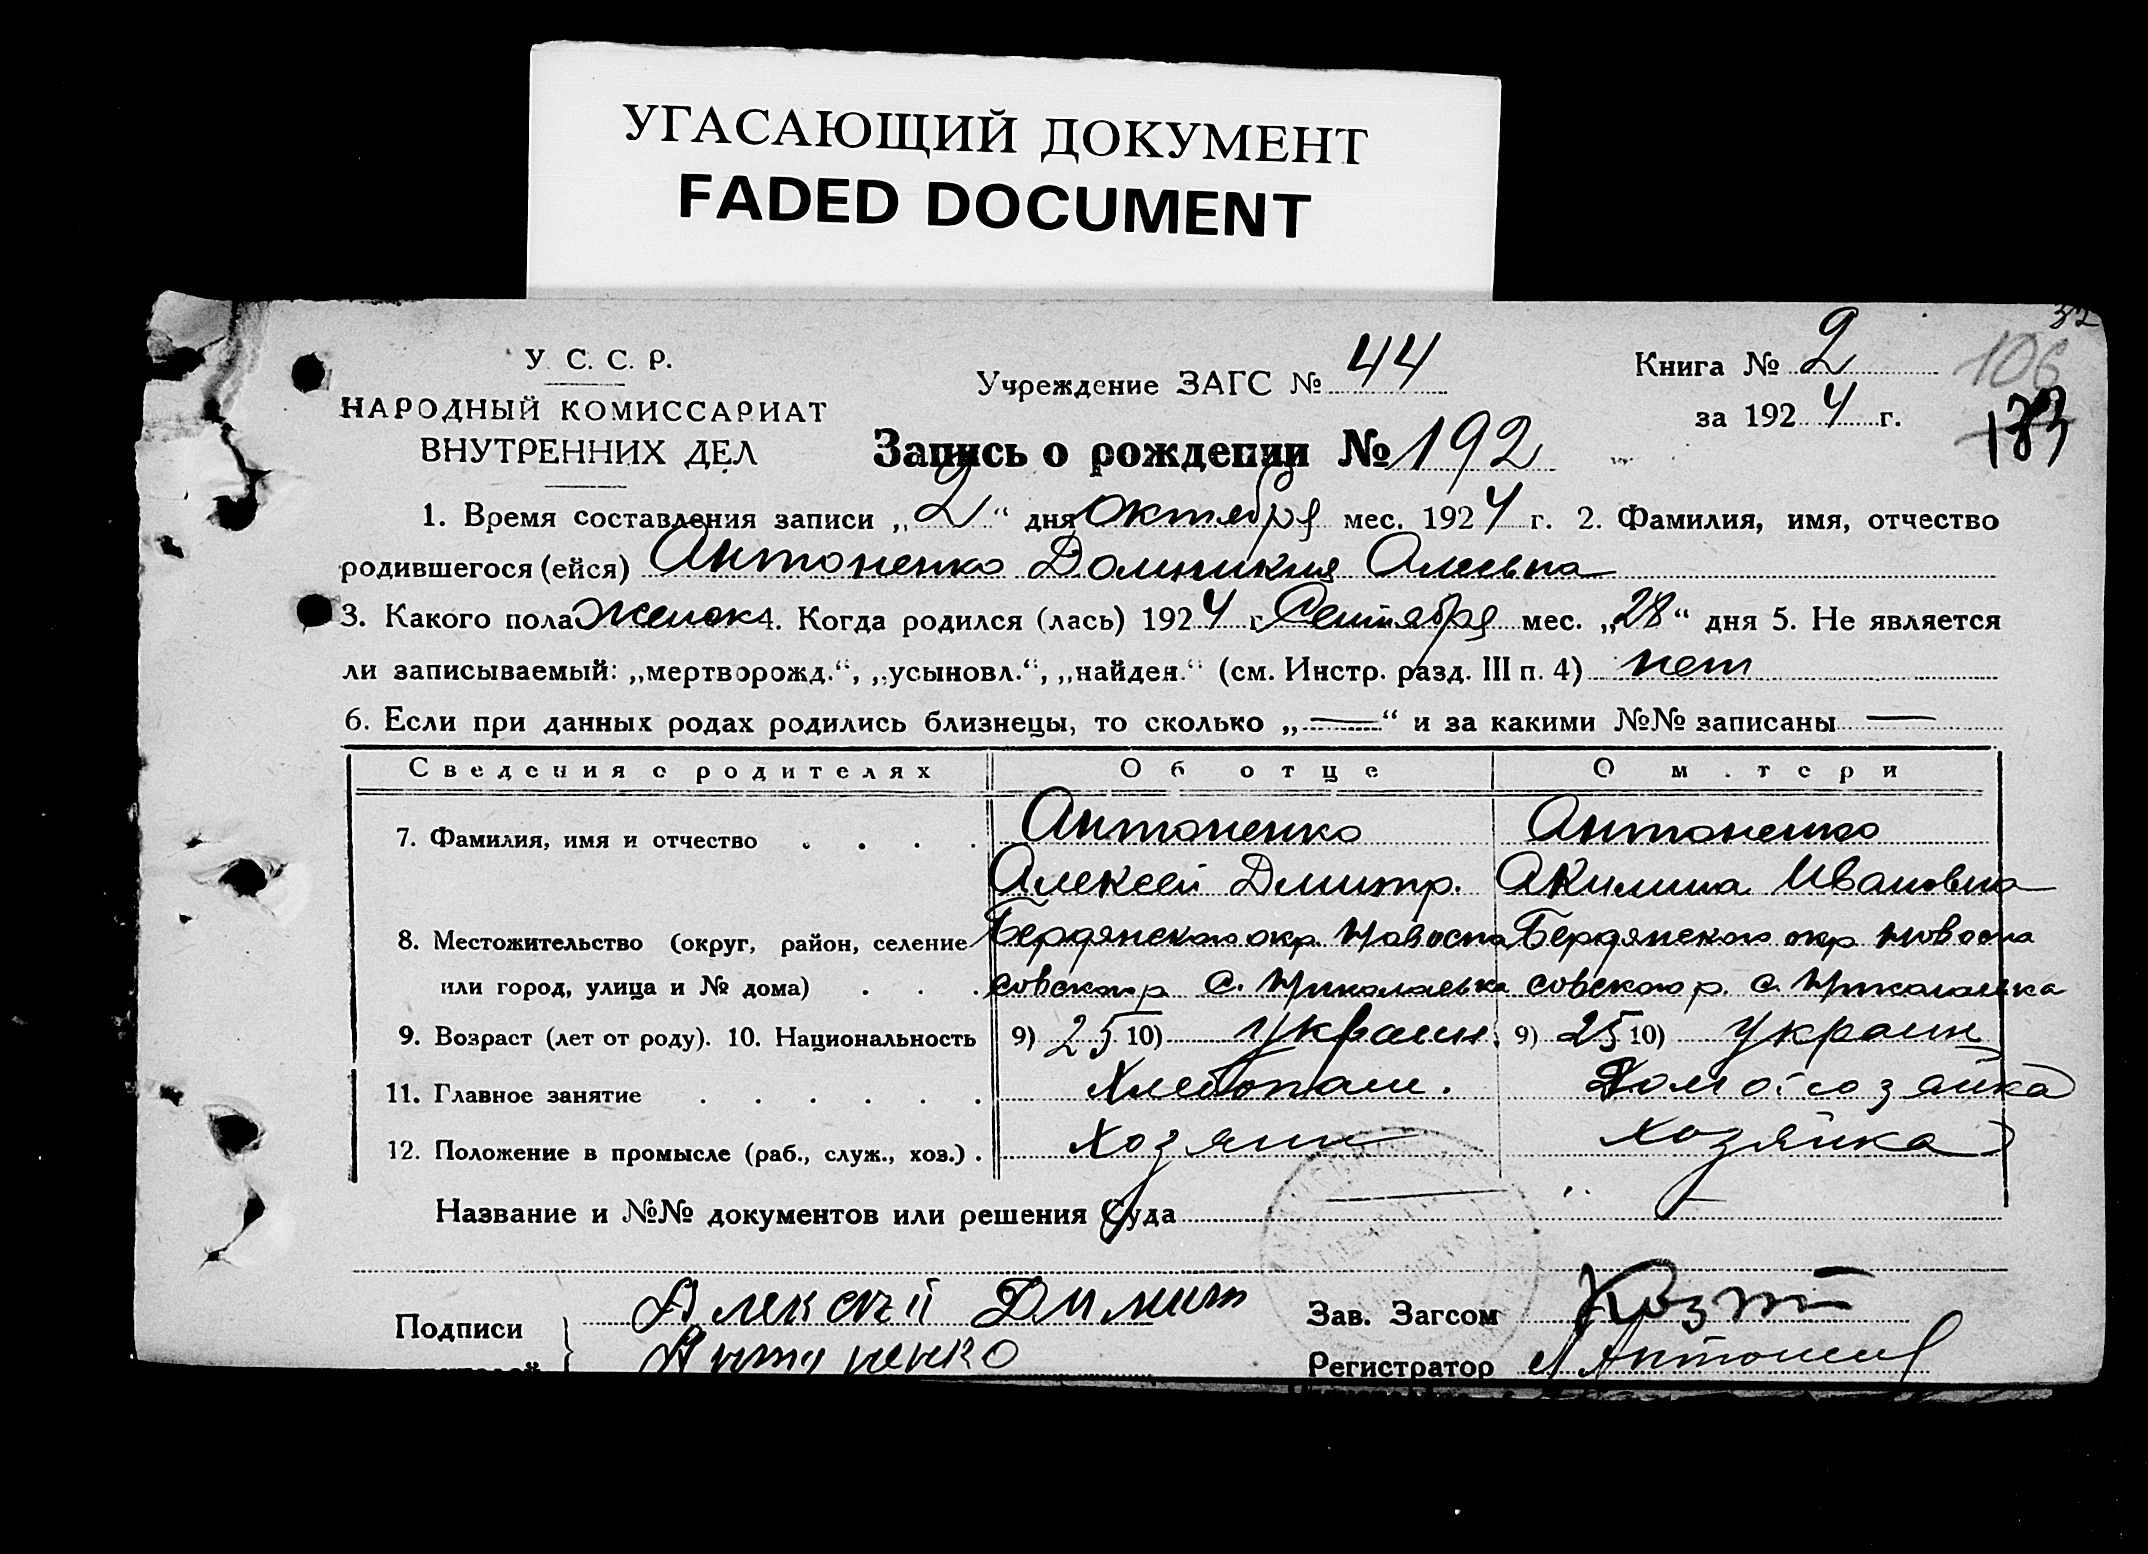 УГАСАЮЩИЙ ДОКУМЕНТ
FADED DOCUMENT
32
У. С. С. Р.
НАРОДНЫЙ КОМИССАРИАТ
ВНУТРЕННИХ ДЕЛ
Учреждение ЗАГС № 44
Книга № 2
за 1924 г.
106
183
Запись о рождении № 192
1. Время составления записи „2“ дня Октября мес. 1924 г. 2. Фамилия, имя, отчество
родившегося (ейся) Антоненко Домникия Алекс.
3. Какого пола женск 4. Когда родился (лась) 1924 г. Сентября мес. „28“ дня 5. Не является
ли записываемый: „мертворожд.“, „усыновл.“, „найден.“ (см. Инстр. разд. III п. 4) нет
6. Если при данных родах родились близнецы, то сколько „—“ и за какими №№ записаны —
Сведения о родителях Об отце О м.тери
7. Фамилия, имя и отчество . . . . Антоненко Антоненко
Алексей Дмитр. Акилина Ивановна
8. Местожительство (округ, район, селение Бердянского окр Новоспа Бердянского окр Новоспа
или город, улица и № дома) . . . совского р с. Николаевка совского р. с. Николаевка
9. Возраст (лет от роду). 10. Национальность 9) 25 10) украин. 9) 25 10) украин
11. Главное занятие . . . . . . Хлебопаш. Домохозяйка
12. Положение в промысле (раб., служ., хоз.) . Хозяин хозяйка
Название и №№ документов или решения Суда
Подписи Алексей Димит
Антоненко
Зав. Загсом
Регистратор